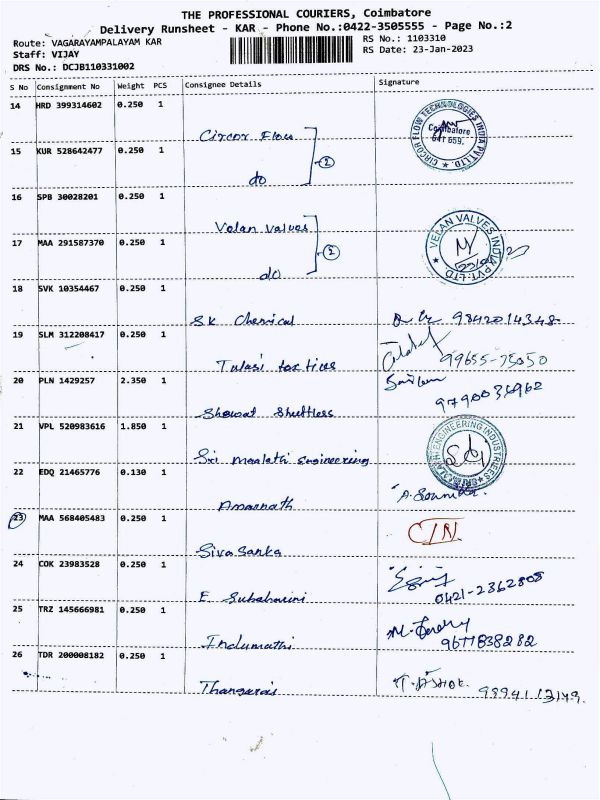 THE PROFESSIONAL COURIERS, Coimbatore
Delivery Runsheet - KAR - Phone No.:0422-3505555 - Page No.:2
Route: VAGARAYAMPALAYAM KAR
RS No.: 1103310
Staff: VIJAY
RS Date: 23-Jan-2023
DRS No.: DCJB110331002
S No Consignment No Weight PCS Consignee Details Signature
14 HRD 399314602 0.250 1
CIRCOR FLOW TECHNOLOGIES INDIA PVT.LTD.
Coimbatore
641 659.
Circor Flow
15 KUR 528642477 0.250 1
2
do
16 SPB 30028201 0.250 1
Velan valves
VELAN VALVES INDIA PVT.LTD.
17 MAA 291587370 0.250 1
2
do
18 SVK 10354467 0.250 1
S.K Chemical 9842014348
19 SLM 312208417 0.250 1
Tulasi 99655-75050
20 PLN 1429257 2.350 1
9790036962
21 VPL 520983616 1.850 1
ENGINEERING INDUSTRIES
Sri Maalathi Engineering
22 EDQ 21465776 0.130 1
Amarnath
23 MAA 568405483 0.250 1
C/N
Siva Sanka
24 COK 23983528 0.250 1
E. Subaharini 0421-2362808
25 TRZ 145666981 0.250 1
Indumathi 9677838282
26 TDR 200008182 0.250 1
Thangaraj T. ASHOK.